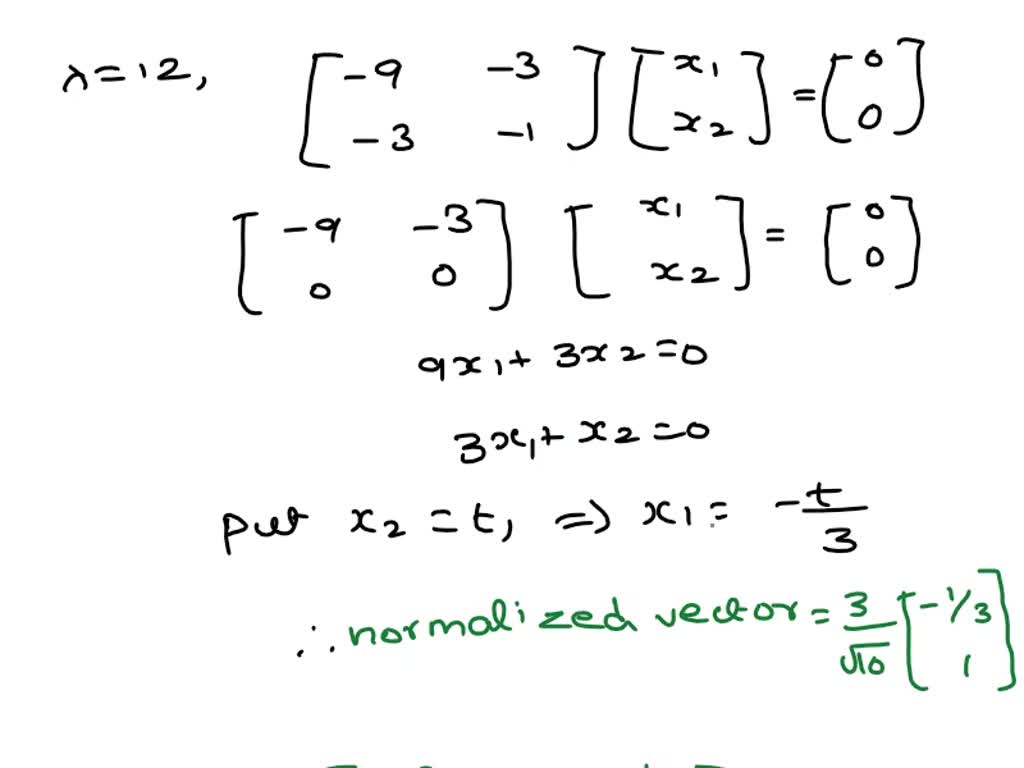 λ=12, [-9 -3; -3 -1] [x1; x2] = [0; 0]
[-9 -3; 0 0] [x1; x2] = [0; 0]
9x1 + 3x2 = 0
3x1 + x2 = 0
put x2 = t, ⇒ x1 = -t/3
∴ normalized vector = 3/√10 [-1/3; 1]